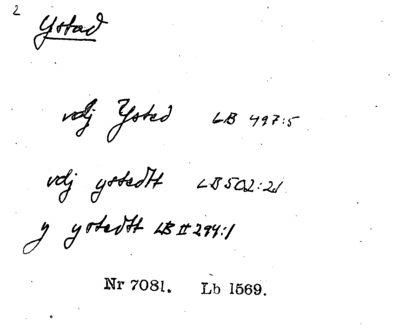 2
Ystad
vdj Ysted LB 497:5
vdj ystedtt LB 502:21
y ystedtt LB II 294:1
Nr 7081. Lb 1569.